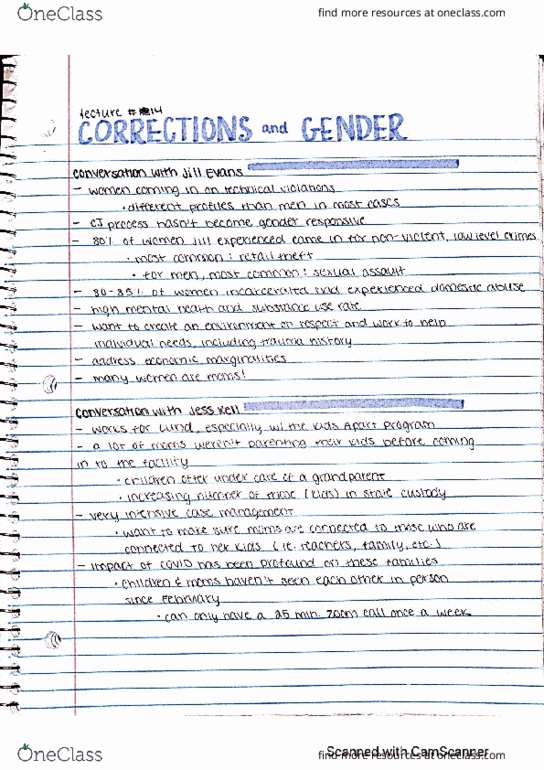 OneClass
find more resources at oneclass.com
lecture #14
CORRECTIONS and GENDER
conversation with Jill Evans
- women coming in on technical violations
• different profiles than men in most cases
- CJ process hasn't become gender responsive
- 80% of women Jill experienced came in for non-violent, low level crimes
• most common: retail theft
• for men, most common: sexual assault
- 80-85% of women incarcerated had experienced domestic abuse
- high mental health and substance use rate
- want to create an environment of respect and work to help
individual needs, including trauma history
- address economic marginalities
- many women are moms!
conversation with Jess Kell
- works for Lund, especially w/ the Kids Apart program
- a lot of moms weren't parenting their kids before coming
in to the facility
• children often under care of a grandparent
• increasing number of those in state custody
- very intensive case management
• want to make sure moms are connected to those who are
connected to her kids (ie. teachers, family, etc.)
- impact of COVID has been profound on these families
• children & moms haven't seen each other in person
since February
• can only have a 25 min. zoom call once a week
OneClass
find more resources at oneclass.com
Scanned with CamScanner